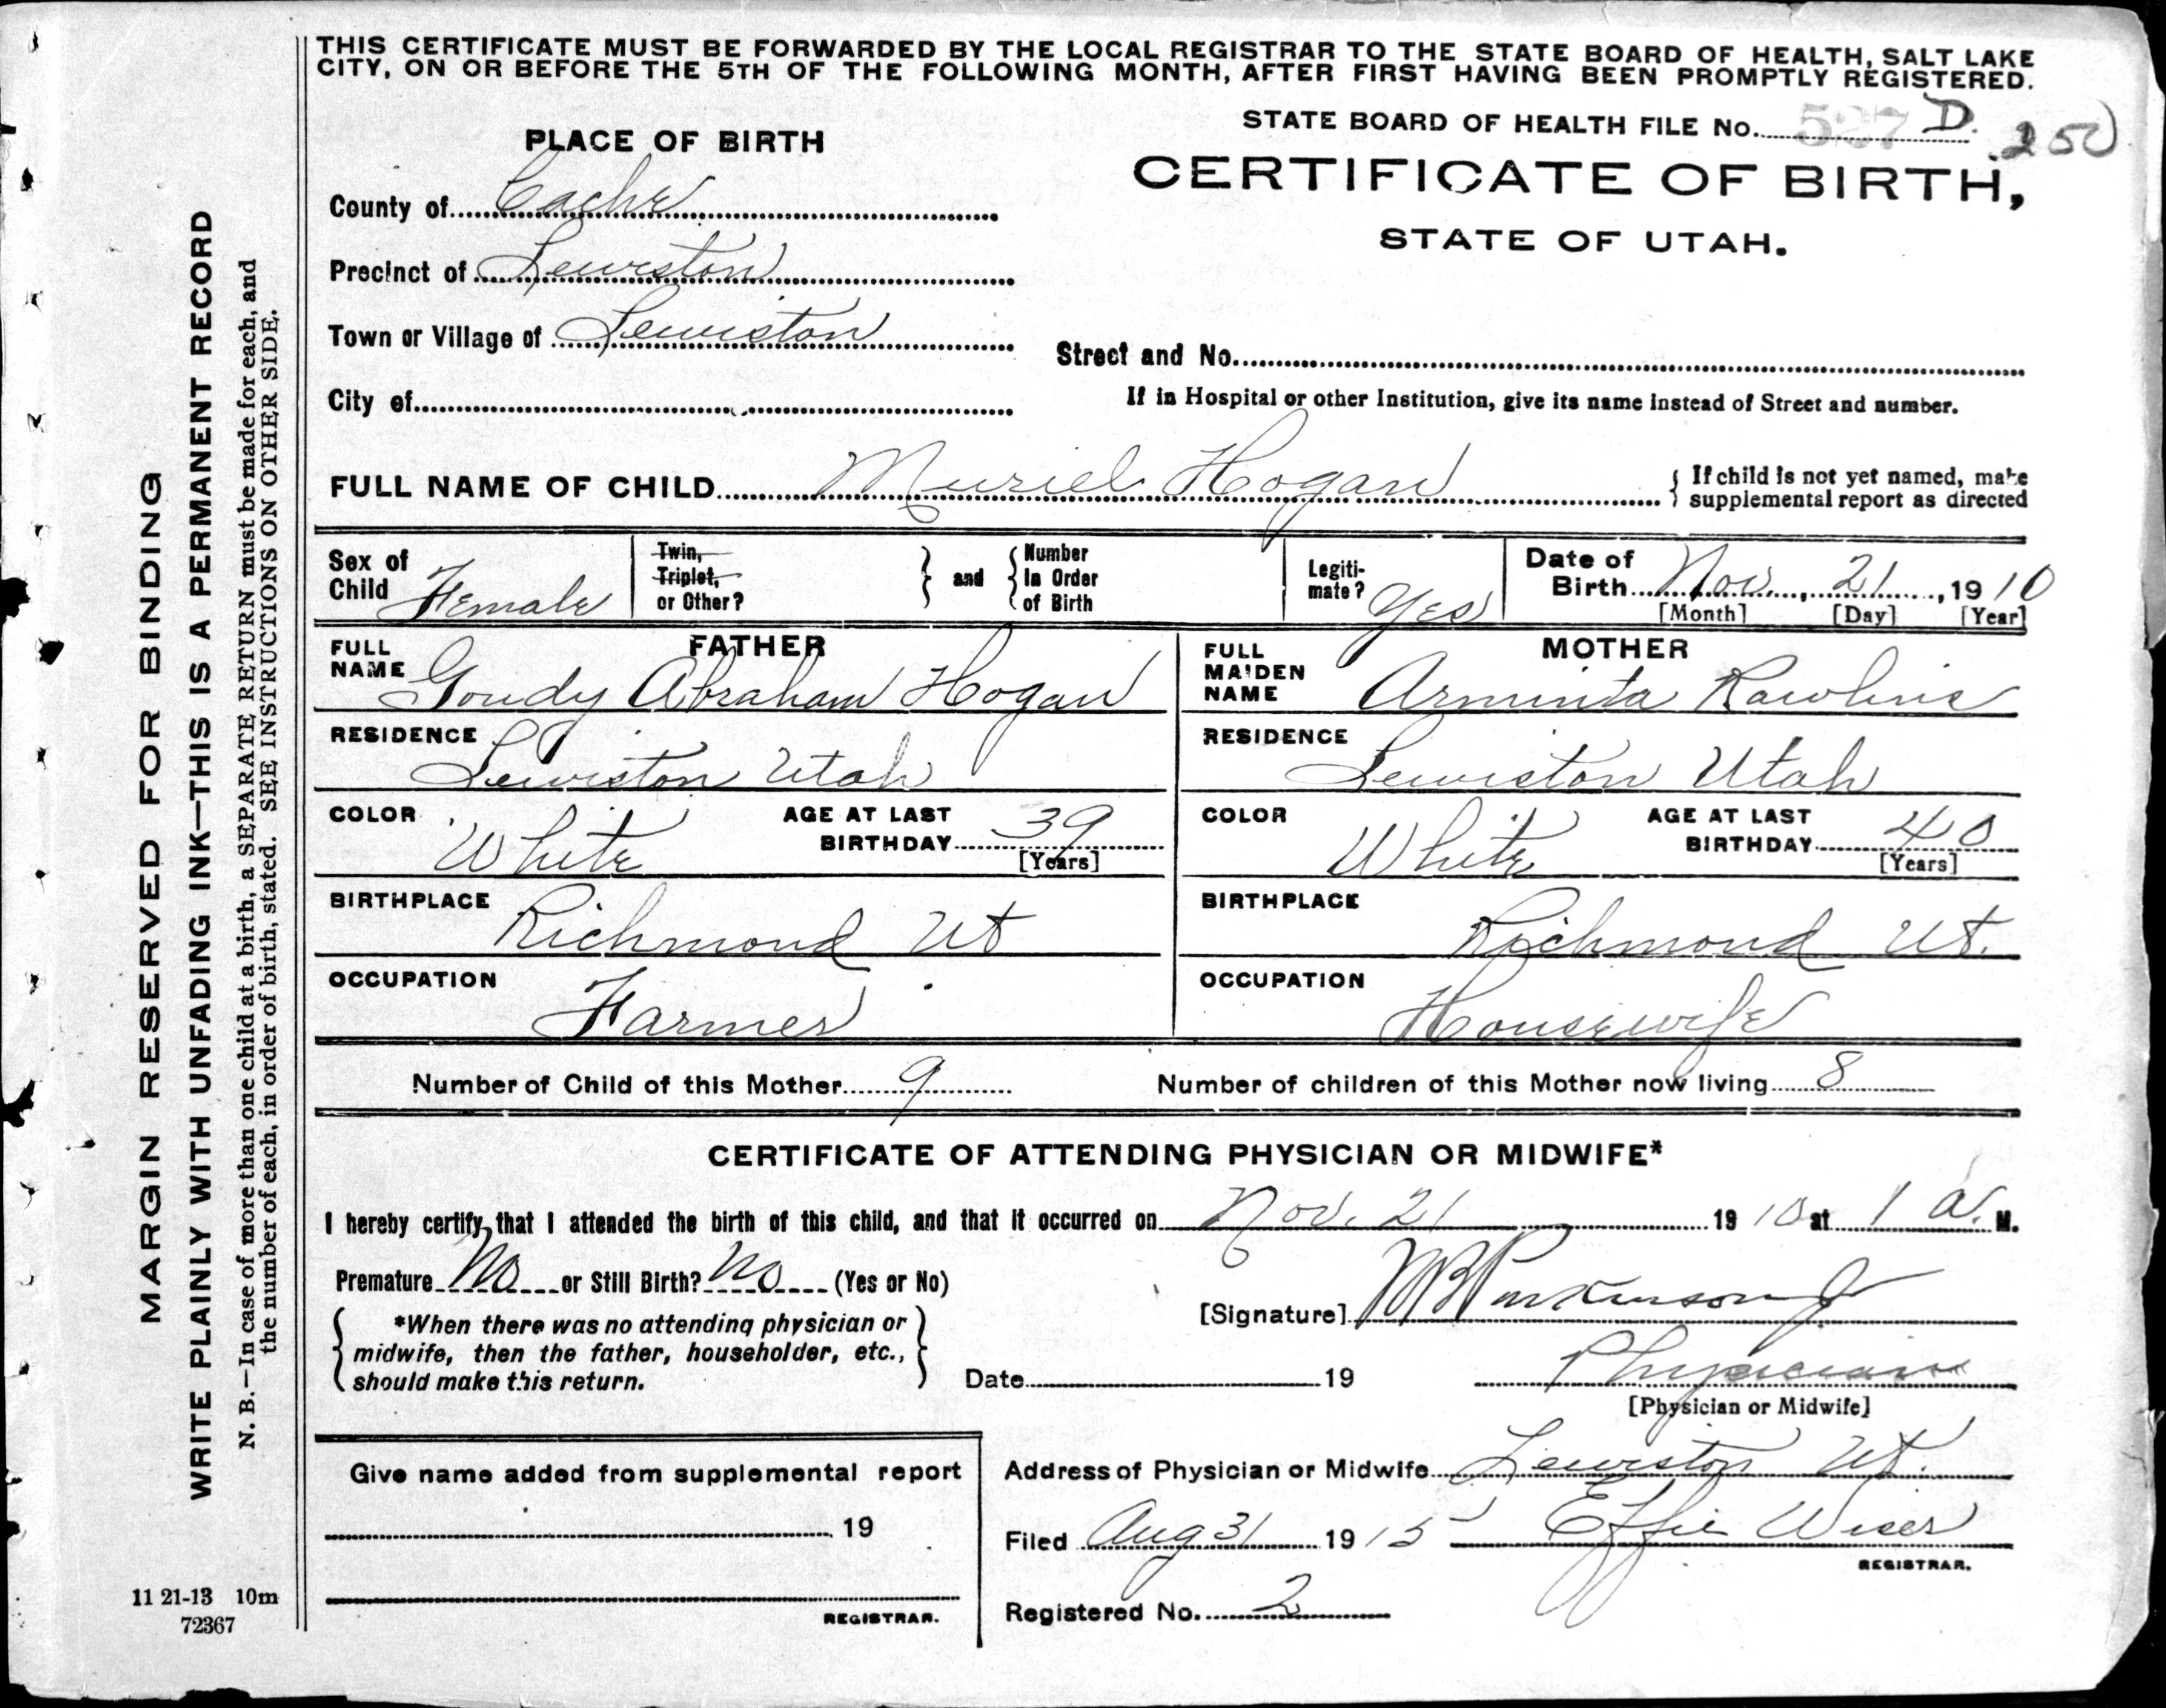 THIS CERTIFICATE MUST BE FORWARDED BY THE LOCAL REGISTRAR TO THE STATE BOARD OF HEALTH, SALT LAKE
CITY, ON OR BEFORE THE 5TH OF THE FOLLOWING MONTH, AFTER FIRST HAVING BEEN PROMPTLY REGISTERED.
STATE BOARD OF HEALTH FILE No. 527 D. 250
CERTIFICATE OF BIRTH,
STATE OF UTAH.
PLACE OF BIRTH
County of Cache
Precinct of Lewiston
Town or Village of Lewiston
City of
Street and No.
If in Hospital or other Institution, give its name instead of Street and number.
FULL NAME OF CHILD Muriel Hogan
{ If child is not yet named, make
supplemental report as directed
Sex of Child Female
Twin,
Triplet,
or Other?
} and {
Number
In Order
of Birth
Legiti-
mate? Yes
Date of
Birth Nov. 21, 1910
[Month] [Day] [Year]
FATHER
FULL NAME Goudy Abraham Hogan
RESIDENCE
Lewiston Utah
COLOR White
AGE AT LAST
BIRTHDAY 39
[Years]
BIRTHPLACE
Richmond Ut
OCCUPATION
Farmer
MOTHER
FULL MAIDEN NAME Arminta Rawlins
RESIDENCE
Lewiston Utah
COLOR White
AGE AT LAST
BIRTHDAY 40
[Years]
BIRTHPLACE
Richmond Ut.
OCCUPATION
Housewife
Number of Child of this Mother 9 Number of children of this Mother now living 8
CERTIFICATE OF ATTENDING PHYSICIAN OR MIDWIFE*
I hereby certify, that I attended the birth of this child, and that it occurred on Nov. 21 1910 at 1 a. M.
Premature No or Still Birth? No (Yes or No)
*When there was no attending physician or
midwife, then the father, householder, etc.,
should make this return.
[Signature] WB Parkinson Jr
Date 19
Physician
[Physician or Midwife]
Give name added from supplemental report
19
REGISTRAR.
Address of Physician or Midwife Lewiston Ut.
Filed Aug 31 1915 Effie Wiser
REGISTRAR.
Registered No. 2
MARGIN RESERVED FOR BINDING
WRITE PLAINLY WITH UNFADING INK—THIS IS A PERMANENT RECORD
N. B.—In case of more than one child at a birth, a SEPARATE RETURN must be made for each, and
the number of each, in order of birth, stated. SEE INSTRUCTIONS ON OTHER SIDE.
11 21-13 10m
72367